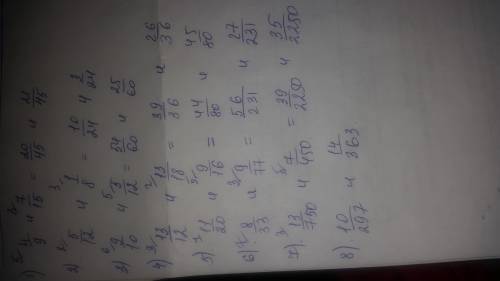 1) ⁵⁄ 4/9 и ³⁄ 7/15 = 20/45 и 21/45
2) ²⁄ 5/12 и ³⁄ 1/8 = 10/24 и 3/24
3) ⁶⁄ 9/10 и ⁵⁄ 5/12 = 54/60 и 25/60
4) ³⁄ 13/12 и ²⁄ 13/18 = 39/36 и 26/36
5) 11/20 и ⁵⁄ 9/16 = 44/80 и 45/80
6) ⁷⁄ 8/33 и ³⁄ 9/77 = 56/231 и 27/231
7) ³⁄ 13/750 и ⁵⁄ 7/450 = 39/2250 и 35/2250
8) 10/297 и 14/363